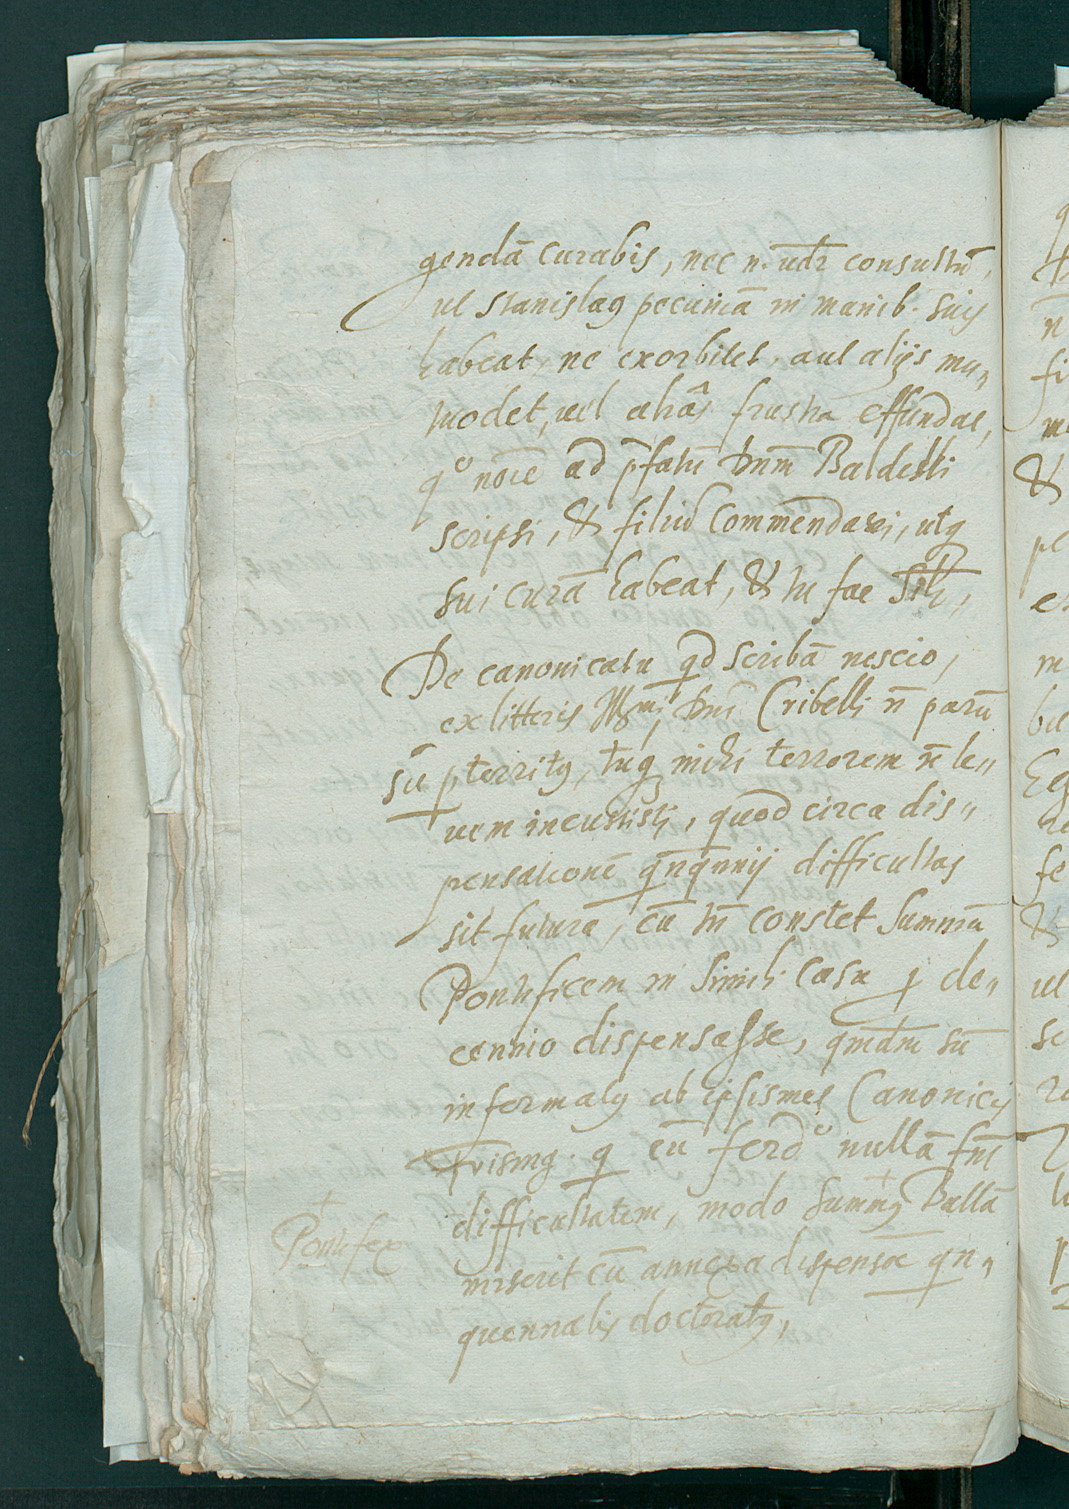 gendā curabis, nec n. vdr̄ consultū,
ut Stanislaꝰ pecuniā in manib. suis
habeat, ne exorbitet, aut alijs mu„
tuodet, vel aliās frustra effundat,
qº noīe ad p̄fatū Dnm̄ Baldelli
scripsi, & filiū Commendavi, utq
sui curā habeat, & tu fac Sil̄r,
De canonicatu qd scribā nescio,
ex litteris Dni Cribelli n̄ parū
sū pterritꝰ, tuq mihi terrorem n̄ le„
vem incussisti, quod circa dis„
pensationē qnqnnij difficultas
sit futura, cū tn̄ constet Summū
Pontificem in simili casu p de„
cennio dispensasse, qmdm sū
informatꝰ ab ipsismet Canonicis
Frising. q cū ferdº nullā fuīt
difficultatem, modo Summꝰ + Bullā
+
Pontifex
miserit cū annexa dispensōe qn„
quennalis doctoratꝰ,